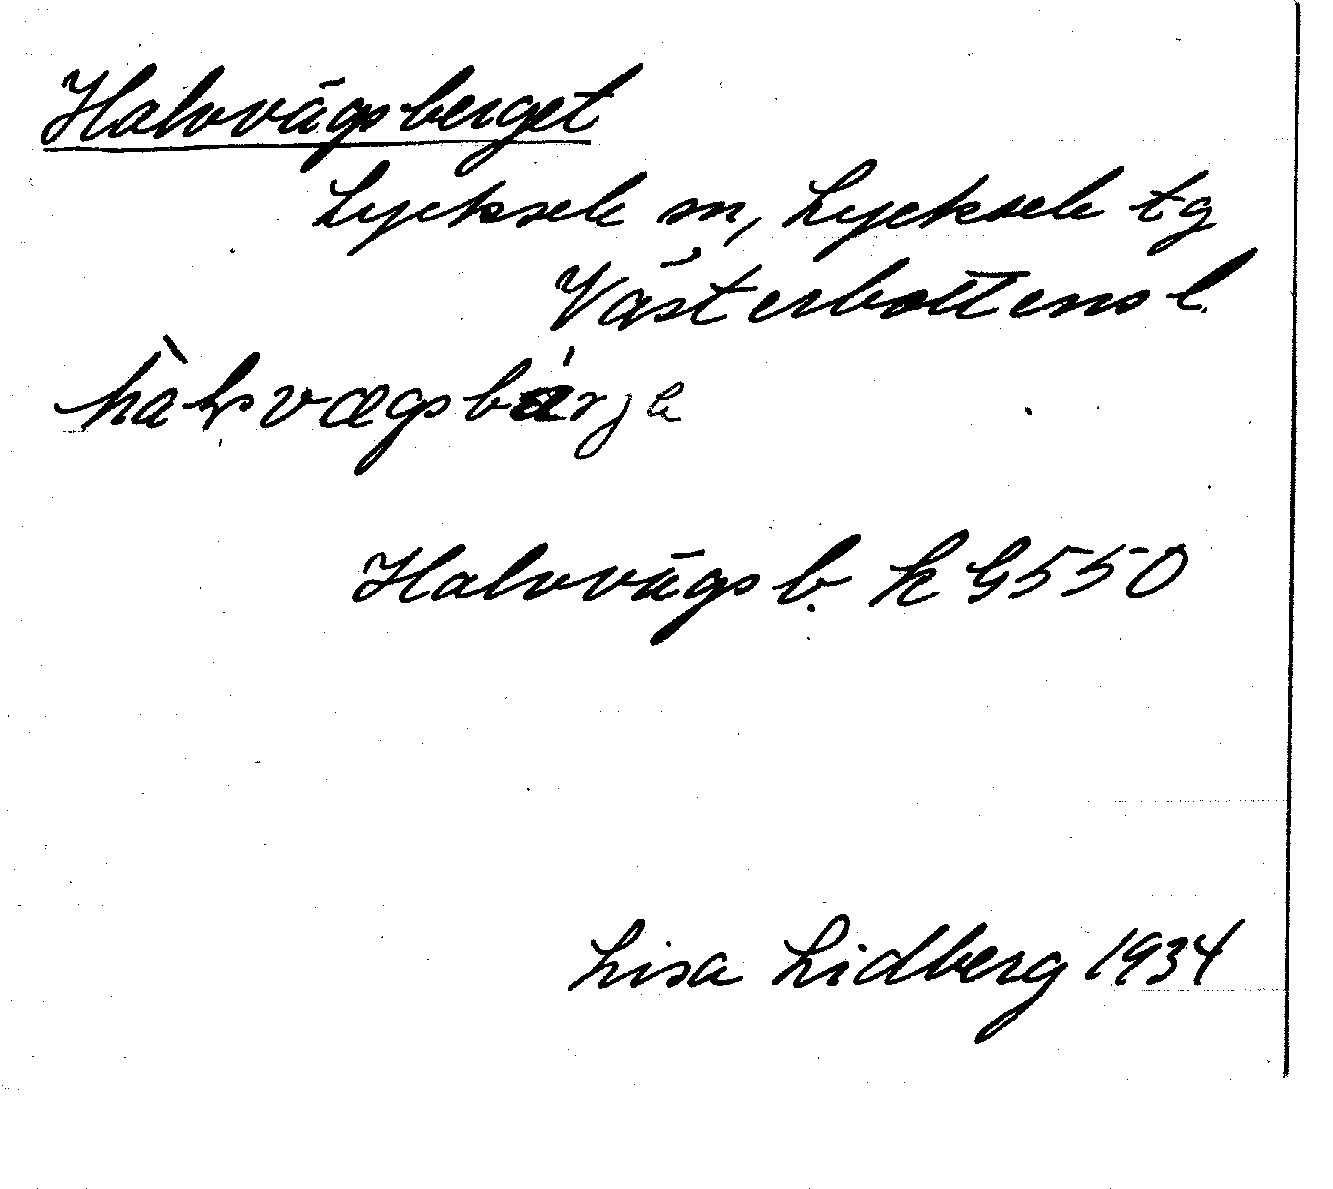 Halvvägsberget
Lycksele sn, Lycksele tg
Västerbottens l.
Halvvägsb. k G550
Lisa Lidberg 1934